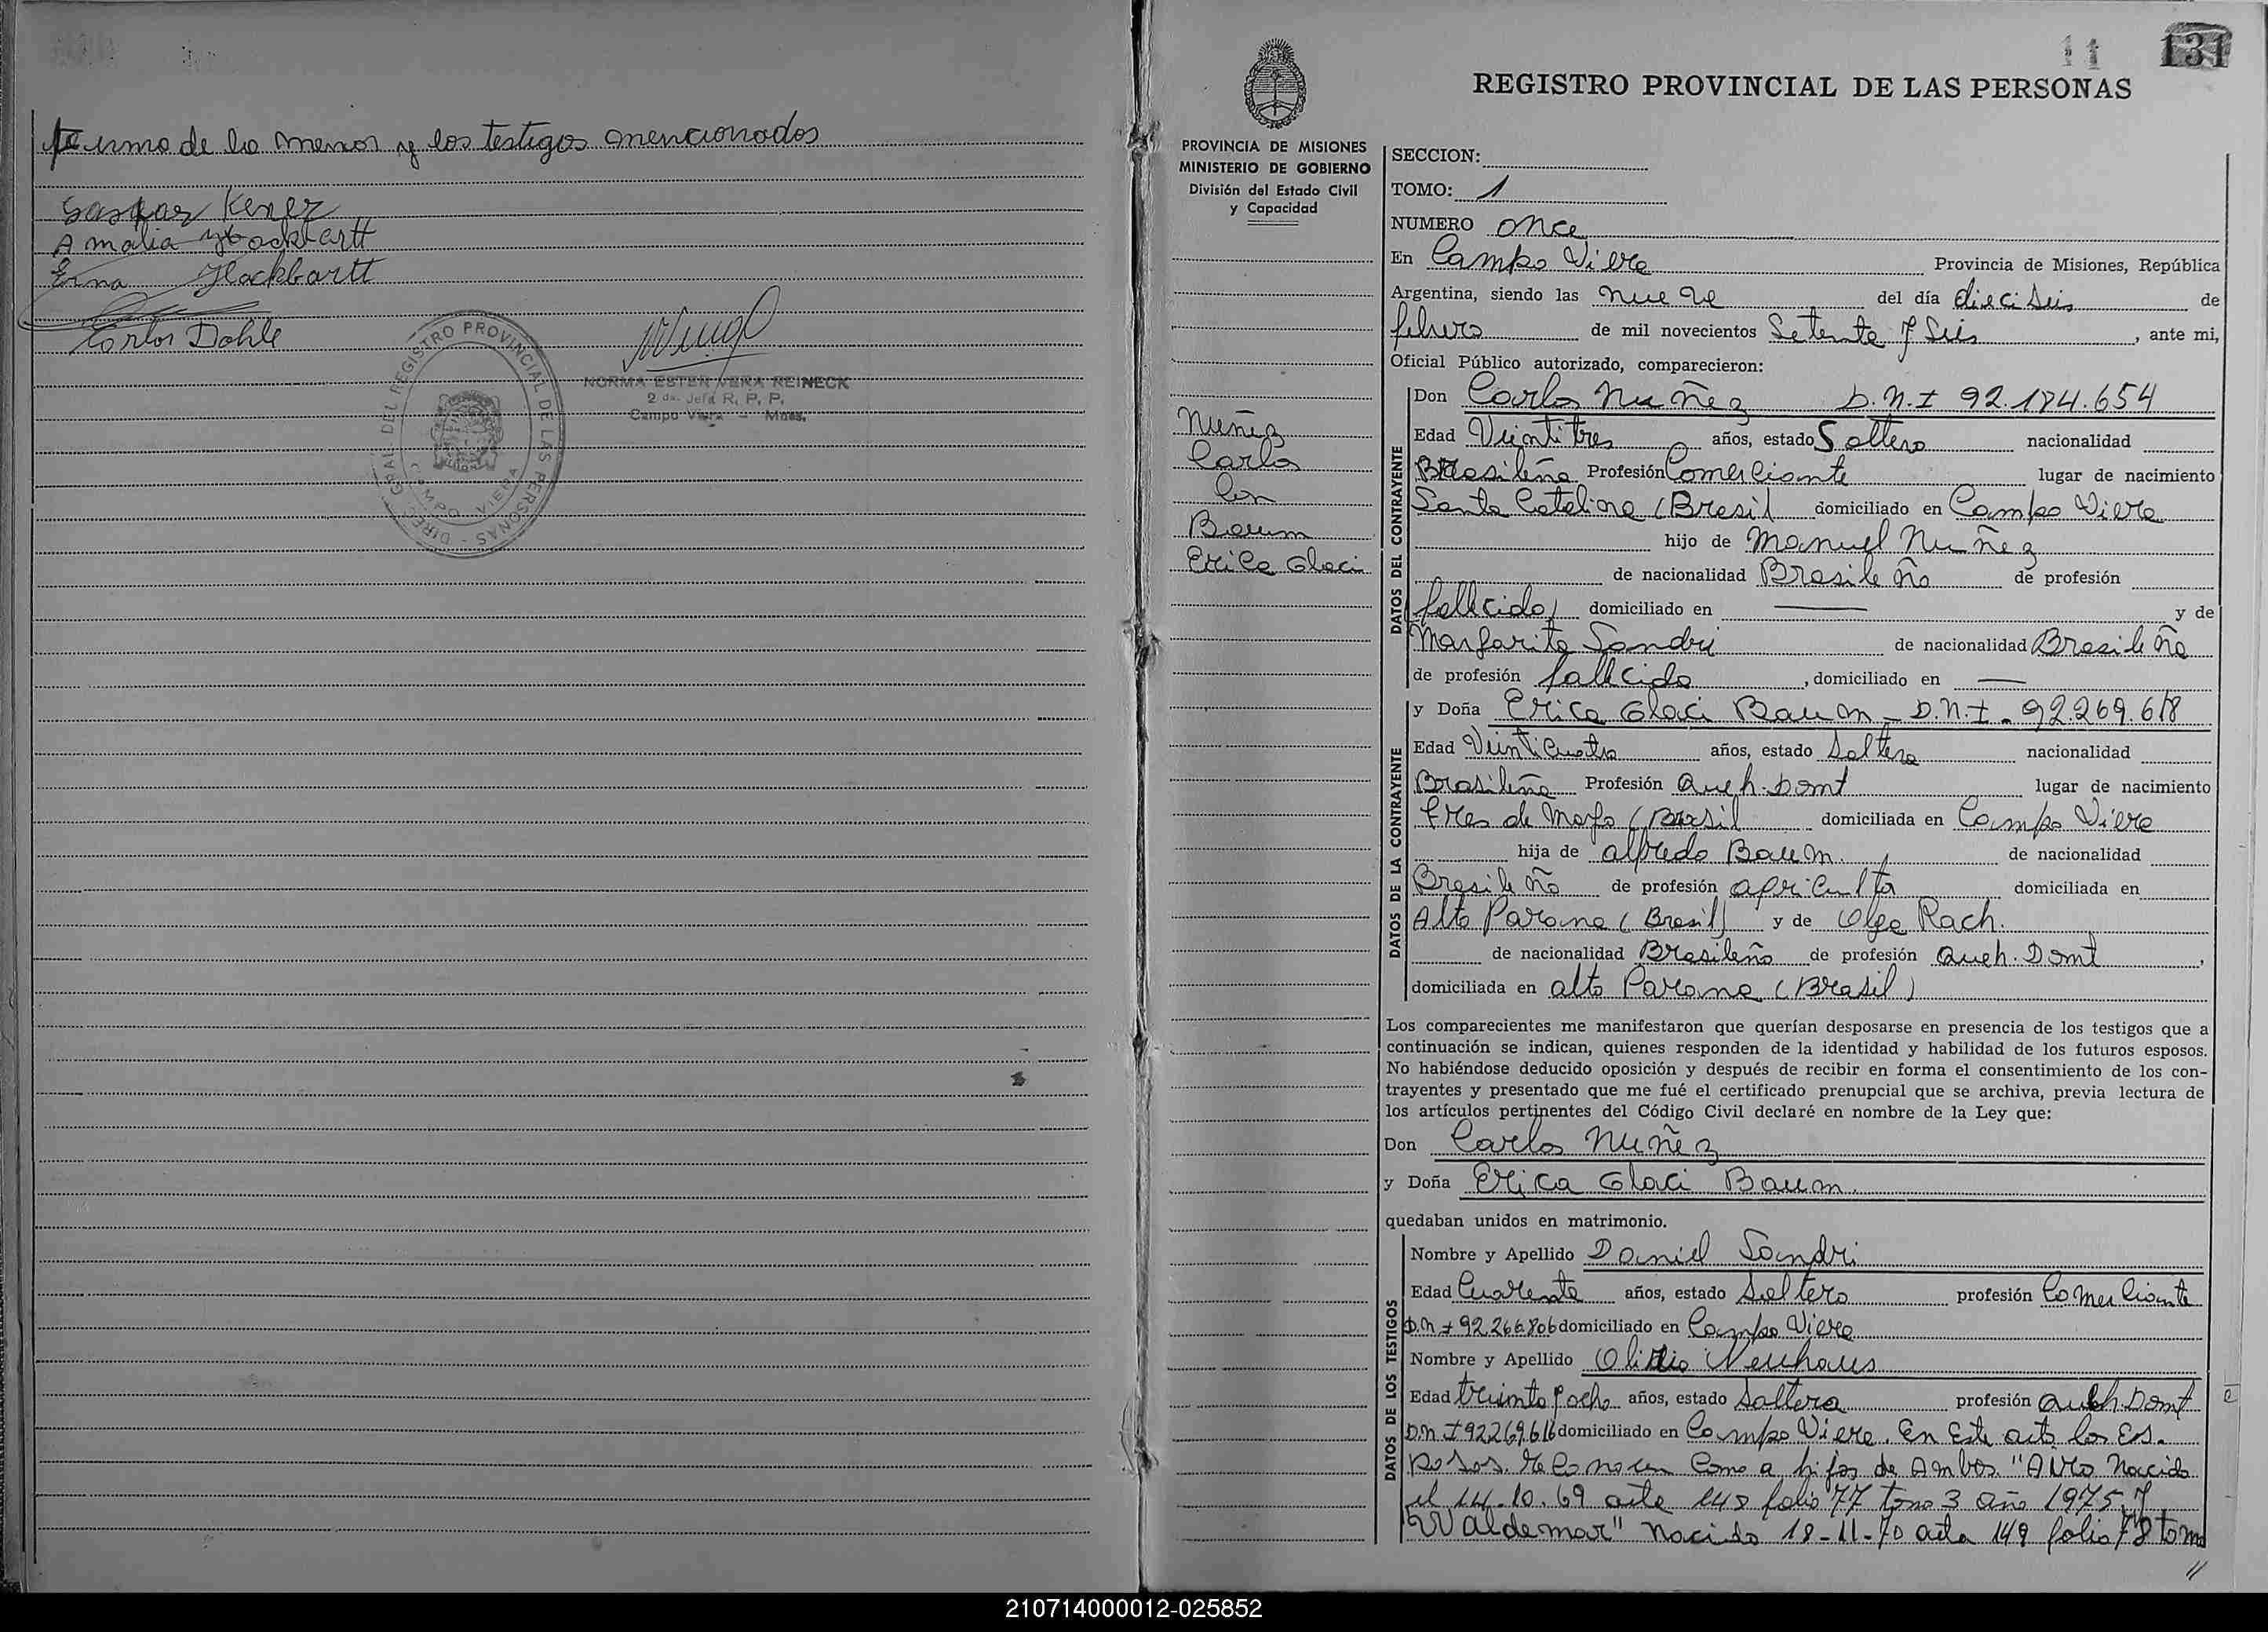 firma de la menor y los testigos mencionados
Gaspar Kener
Amalia Hackbartt
Erna Hackbartt
Carlos Dohle
NORMA ESTER VERA REINECK
2 da. Jefa R. P. P.
Campo Viera - Mnes.
DIREC. GRAL. DEL REGISTRO PROVINCIAL DE LAS PERSONAS
CAMPO VIERA
11 131
REGISTRO PROVINCIAL DE LAS PERSONAS
PROVINCIA DE MISIONES
MINISTERIO DE GOBIERNO
División del Estado Civil
y Capacidad
Nuñez
Carlos
Con
Baum
Erica Glaci
SECCION:
TOMO: 1
NUMERO once
En Campo Viera Provincia de Misiones, República
Argentina, siendo las nueve del día dieciseis de
febrero de mil novecientos Setenta y Seis, ante mi,
Oficial Público autorizado, comparecieron:
DATOS DEL CONTRAYENTE
Don Carlos Nuñez D.N.I 92.184.654
Edad Veintitres años, estado Soltero nacionalidad
Brasileña Profesión Comerciante lugar de nacimiento
Santa Catalina (Brasil domiciliado en Campo Viera
hijo de Manuel Nuñez
de nacionalidad Brasileño de profesión
(fallecido) domiciliado en — y de
Margarita Sandri de nacionalidad Brasileña
de profesión fallecida, domiciliado en —
DATOS DE LA CONTRAYENTE
y Doña Erica Glaci Baum - D.N.I. 92.269.618
Edad Veinticuatro años, estado Soltera nacionalidad
Brasileña Profesión Queh. Domt lugar de nacimiento
Tres de Mayo (Brasil domiciliada en Campo Viera
hija de Alfredo Baum. de nacionalidad
Brasileño de profesión agricultor domiciliada en
Alto Parana (Brasil) y de Olga Rach.
de nacionalidad Brasileña de profesión Queh. Domt,
domiciliada en alto Parana (Brasil)
Los comparecientes me manifestaron que querían desposarse en presencia de los testigos que a
continuación se indican, quienes responden de la identidad y habilidad de los futuros esposos.
No habiéndose deducido oposición y después de recibir en forma el consentimiento de los con-
trayentes y presentado que me fué el certificado prenupcial que se archiva, previa lectura de
los artículos pertinentes del Código Civil declaré en nombre de la Ley que:
Don Carlos Nuñez
y Doña Erica Glaci Baum.
quedaban unidos en matrimonio.
DATOS DE LOS TESTIGOS
Nombre y Apellido Daniel Sandri
Edad Cuarenta años, estado Soltero profesión Comerciante
D.N I 92.266.806 domiciliado en Campo Viera
Nombre y Apellido Neuhaus
Edad treinta y ocho años, estado Soltera profesión Queh. Domt
D.N I 92269.616 domiciliado en Campo Viera. En Este acto los Es-
posos. reconocen Como a hijos de Ambos. "Nacido
el 14-10-69 acta 148 folio 77 tomo 3 año 1975 y
"Waldemar" Nacido 18-11-70 acta 149 folio 78 tomo
//
210714000012-025852